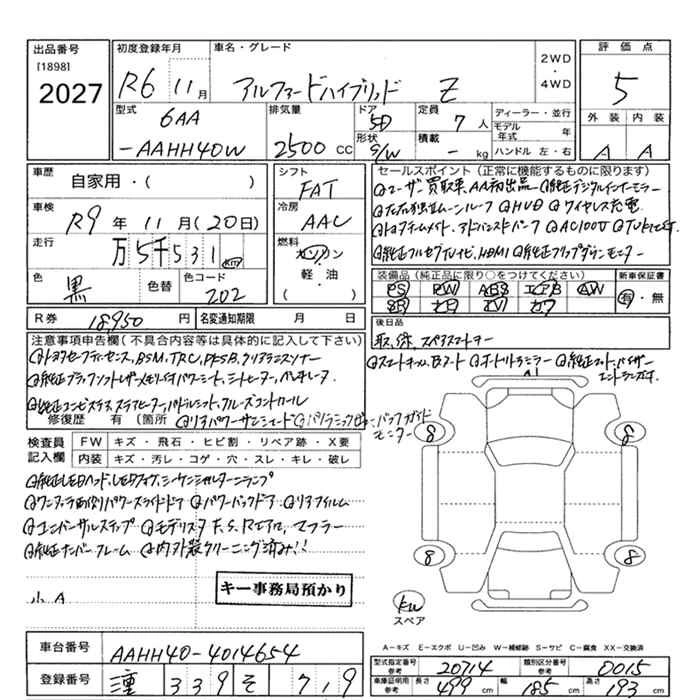 出品番号
[1898]
2027
初度登録年月
R6 11月
車名・グレード
アルファードハイブリッド Z
2WD
・
4WD
評価点
5
外装 内装
A A
型式
6AA
-AAHH40W
排気量
2500 CC
ドア
5D
形状
S/W
定員
7人
積載
- kg
ディーラー・並行
モデル年式 年
ハンドル 左・右
車歴
自家用・( )
車検
R9年11月(20日)
走行
万5千531km
色
黒
色替
色コード
202
シフト
FAT
冷房
AAC
燃料
ガソリン
軽・油
( )
セールスポイント(正常に機能するものに限ります)
ユーザー買取車、AA初出品 純正デジタルインナーミラー
左右独立ムーンルーフ HUD ワイヤレス充電
トヨタチームメイト、アドバンストパーク AC100V
純正フルセグTVナビ、HDMI 純正フリップダウンモニター
装備品(純正品に限り○をつけてください)
PS PW ABS エアB AW
SR ナビ TV カワ
新車保証書
有・無
R券 18,950円
名変通知期限 月 日
後日品
取、保、スペアスマートキー
注意事項申告欄(不具合内容等は具体的に記入して下さい)
トヨタセーフティセンス、BSM、TRC、PKSB、クリアランスソナー
純正ブラックソフトレザーメモリ付パワーシート、シートヒーター、ベンチレータ
純正コンビステアリング、ステアヒーター、パドルシフト、クルーズコントロール
修復歴 有 〔箇所 リアパワーサンシェード パノラミックビュー、バックガイドモニター
スマートルームBカード オートリトラミラー 純正マット、バイザー
エントランスガーニッシュ
検査員記入欄
FW キズ・飛石・ヒビ割・リペア跡・X要
内装 キズ・汚レ・コゲ・穴・スレ・キレ・破レ
純正LEDヘッド、LEDフォグ、シーケンシャルターンランプ
ワンタッチ両側パワースライドドア パワーバックドア リアフィルム
ユニバーサルステップ モデリスタF.S.Rエアロ、マフラー
純正ナンバーフレーム 内外装クリーニング済み!!
小A
キー事務局預かり
A1
8 8
8 8
kw
スペア
A−キズ E−エクボ U−凹み W−補修跡 S−サビ C−腐食 XX−交換済
車台番号 AAHH40-4014654
登録番号 339 そ 719
型式指定番号 参考 20714
類別区分番号 参考 0015
車庫証明用 参考 長さ 499cm 幅 185cm 高さ 193cm